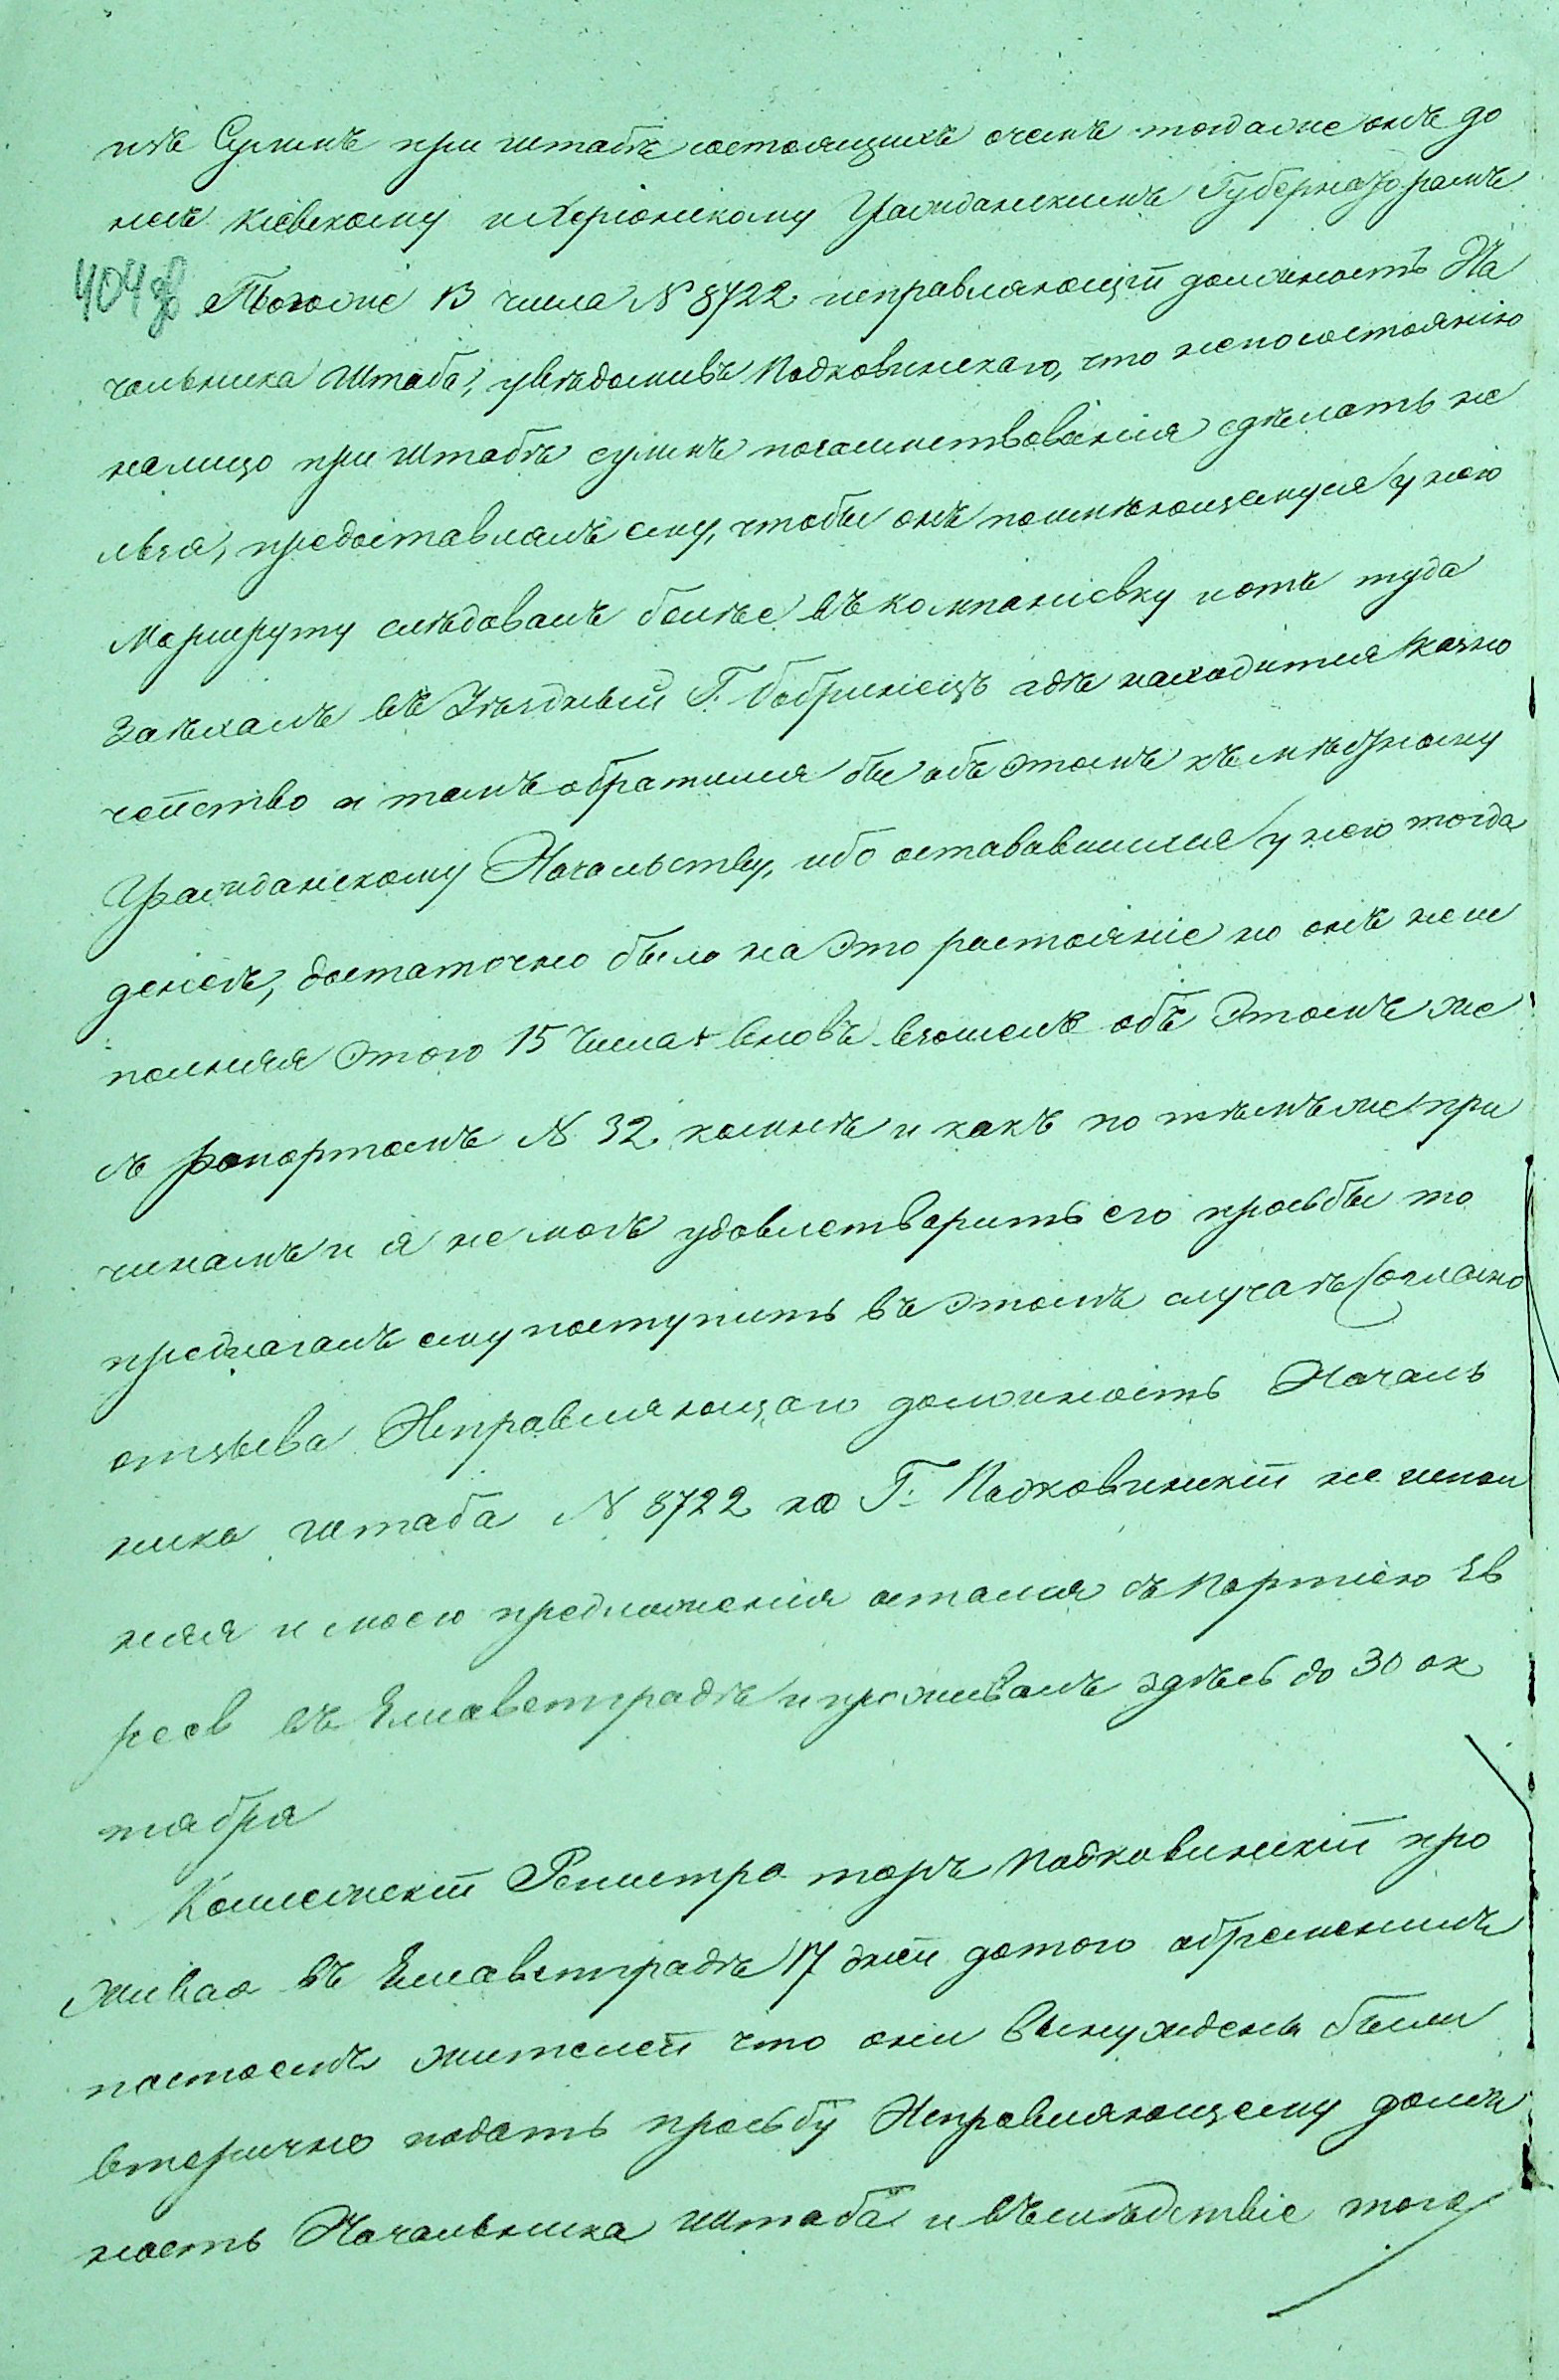 изъ Суммъ при штабѣ состоящихъ очемъ тогдаже онъ до
несъ Кіевскому и Херсонскому Гражданскимъ Губернаторамъ
404 об Тогоже 13 числа № 8722 исправляющій должность На
чальника Штаба, увѣдомивъ Подковинскаго, что непосостоянію
налицо при штабѣ суммъ позаимствованія сдѣлать не
льзя, предоставлялъ ему, чтобы онъ поимѣющемуся у него
Маршруту слѣдовалъ болѣе въ Компаніевку и отъ туда
Заѣхалъ въ Уѣздный Г. Бобринецъ гдѣ находится Казна
чейство и тамъ обратился бы объ этомъ къ мѣстному
Гражданскому Начальству, ибо остававшихся у него тогда
денегъ, достаточно было на это растояніе но онъ неис
полняя этого 15 числа вновь взошелъ объ этомъ же
съ рапортомъ № 32 комнѣ и какъ по тѣмъ же при
чинамъ и я не могъ удовлетворить его просьбы то
предлагалъ ему поступить въ этомъ случаѣ согласно
отзыва Исправляющаго должность Началь
ника штаба № 8722 но Г. Подковинскій не испол
няя и моего предложенія остался съ партіею Ев
реев въ Елисаветградѣ и проживалъ здѣсь до 30 ок
тября
Коллежскій Регистраторъ Подковинскій про
живая въ Елисаветградѣ 17 дней дотого обременилъ
постоемъ жителей что они вынуждены были
вторично подать просьбу Исправляющему долж
ность Начальника штаба и въслѣдствіе того